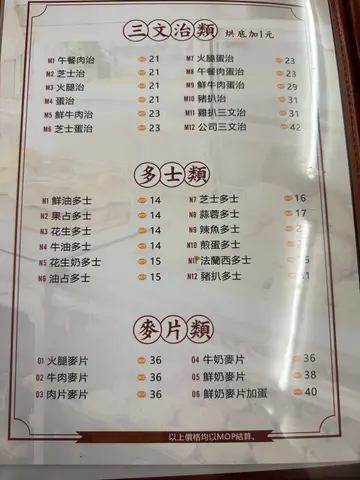 三文治類 烘底加1元
M1 午餐肉治 21 M7 火腿蛋治 23
M2 芝士治 21 M8 午餐肉蛋治 23
M3 火腿治 21 M9 鮮牛肉蛋治 29
M4 蛋治 21 M10 豬扒治 31
M5 鮮牛肉治 23 M11 雞扒三文治 31
M6 芝士蛋治 23 M12 公司三文治 42
多士類
N1 鮮油多士 14 N7 芝士多士 16
N2 果占多士 14 N8 蒜蓉多士 17
N3 花生多士 14 N9 辣魚多士
N4 牛油多士 14 N10 煎蛋多士
N5 花生奶多士 15 N11 法蘭西多士
N6 油占多士 15 N12 豬扒多士
麥片類
01 火腿麥片 36 04 牛奶麥片 36
02 牛肉麥片 36 05 鮮奶麥片 38
03 肉片麥片 36 06 鮮奶麥片加蛋 40
以上價格均以MOP結算。